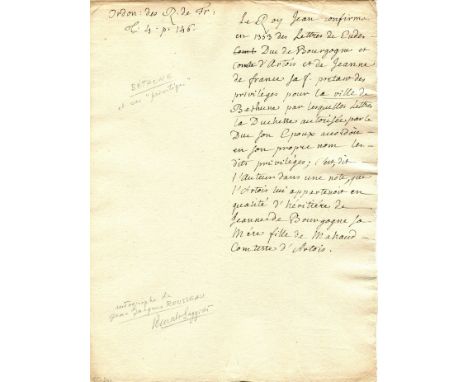 Ordon: des R. de Fr:
t. 4. p. 146.
Le Roy Jean confirme
en 1353 des Lettres de Eudes
Duc de Bourgogne et
Comte d'Artois et de Jeanne
de france sa f. portant des
privilèges pour la ville de
Bethune par lesquelles Lettres
la Duchesse autorisée par le
Duc son Epoux accordoit
en son propre nom les-
dits privilèges; c'est, dit
l'Auteur dans une note, que
l'Artois lui appartenoit en
qualité d'héritiére de
Jeanne de Bourgogne sa
Mére fille de Mahaud
Comtesse d'Artois.
BETHUNE
et ses "privilèges"
autographe de
Jean Jacques ROUSSEAU